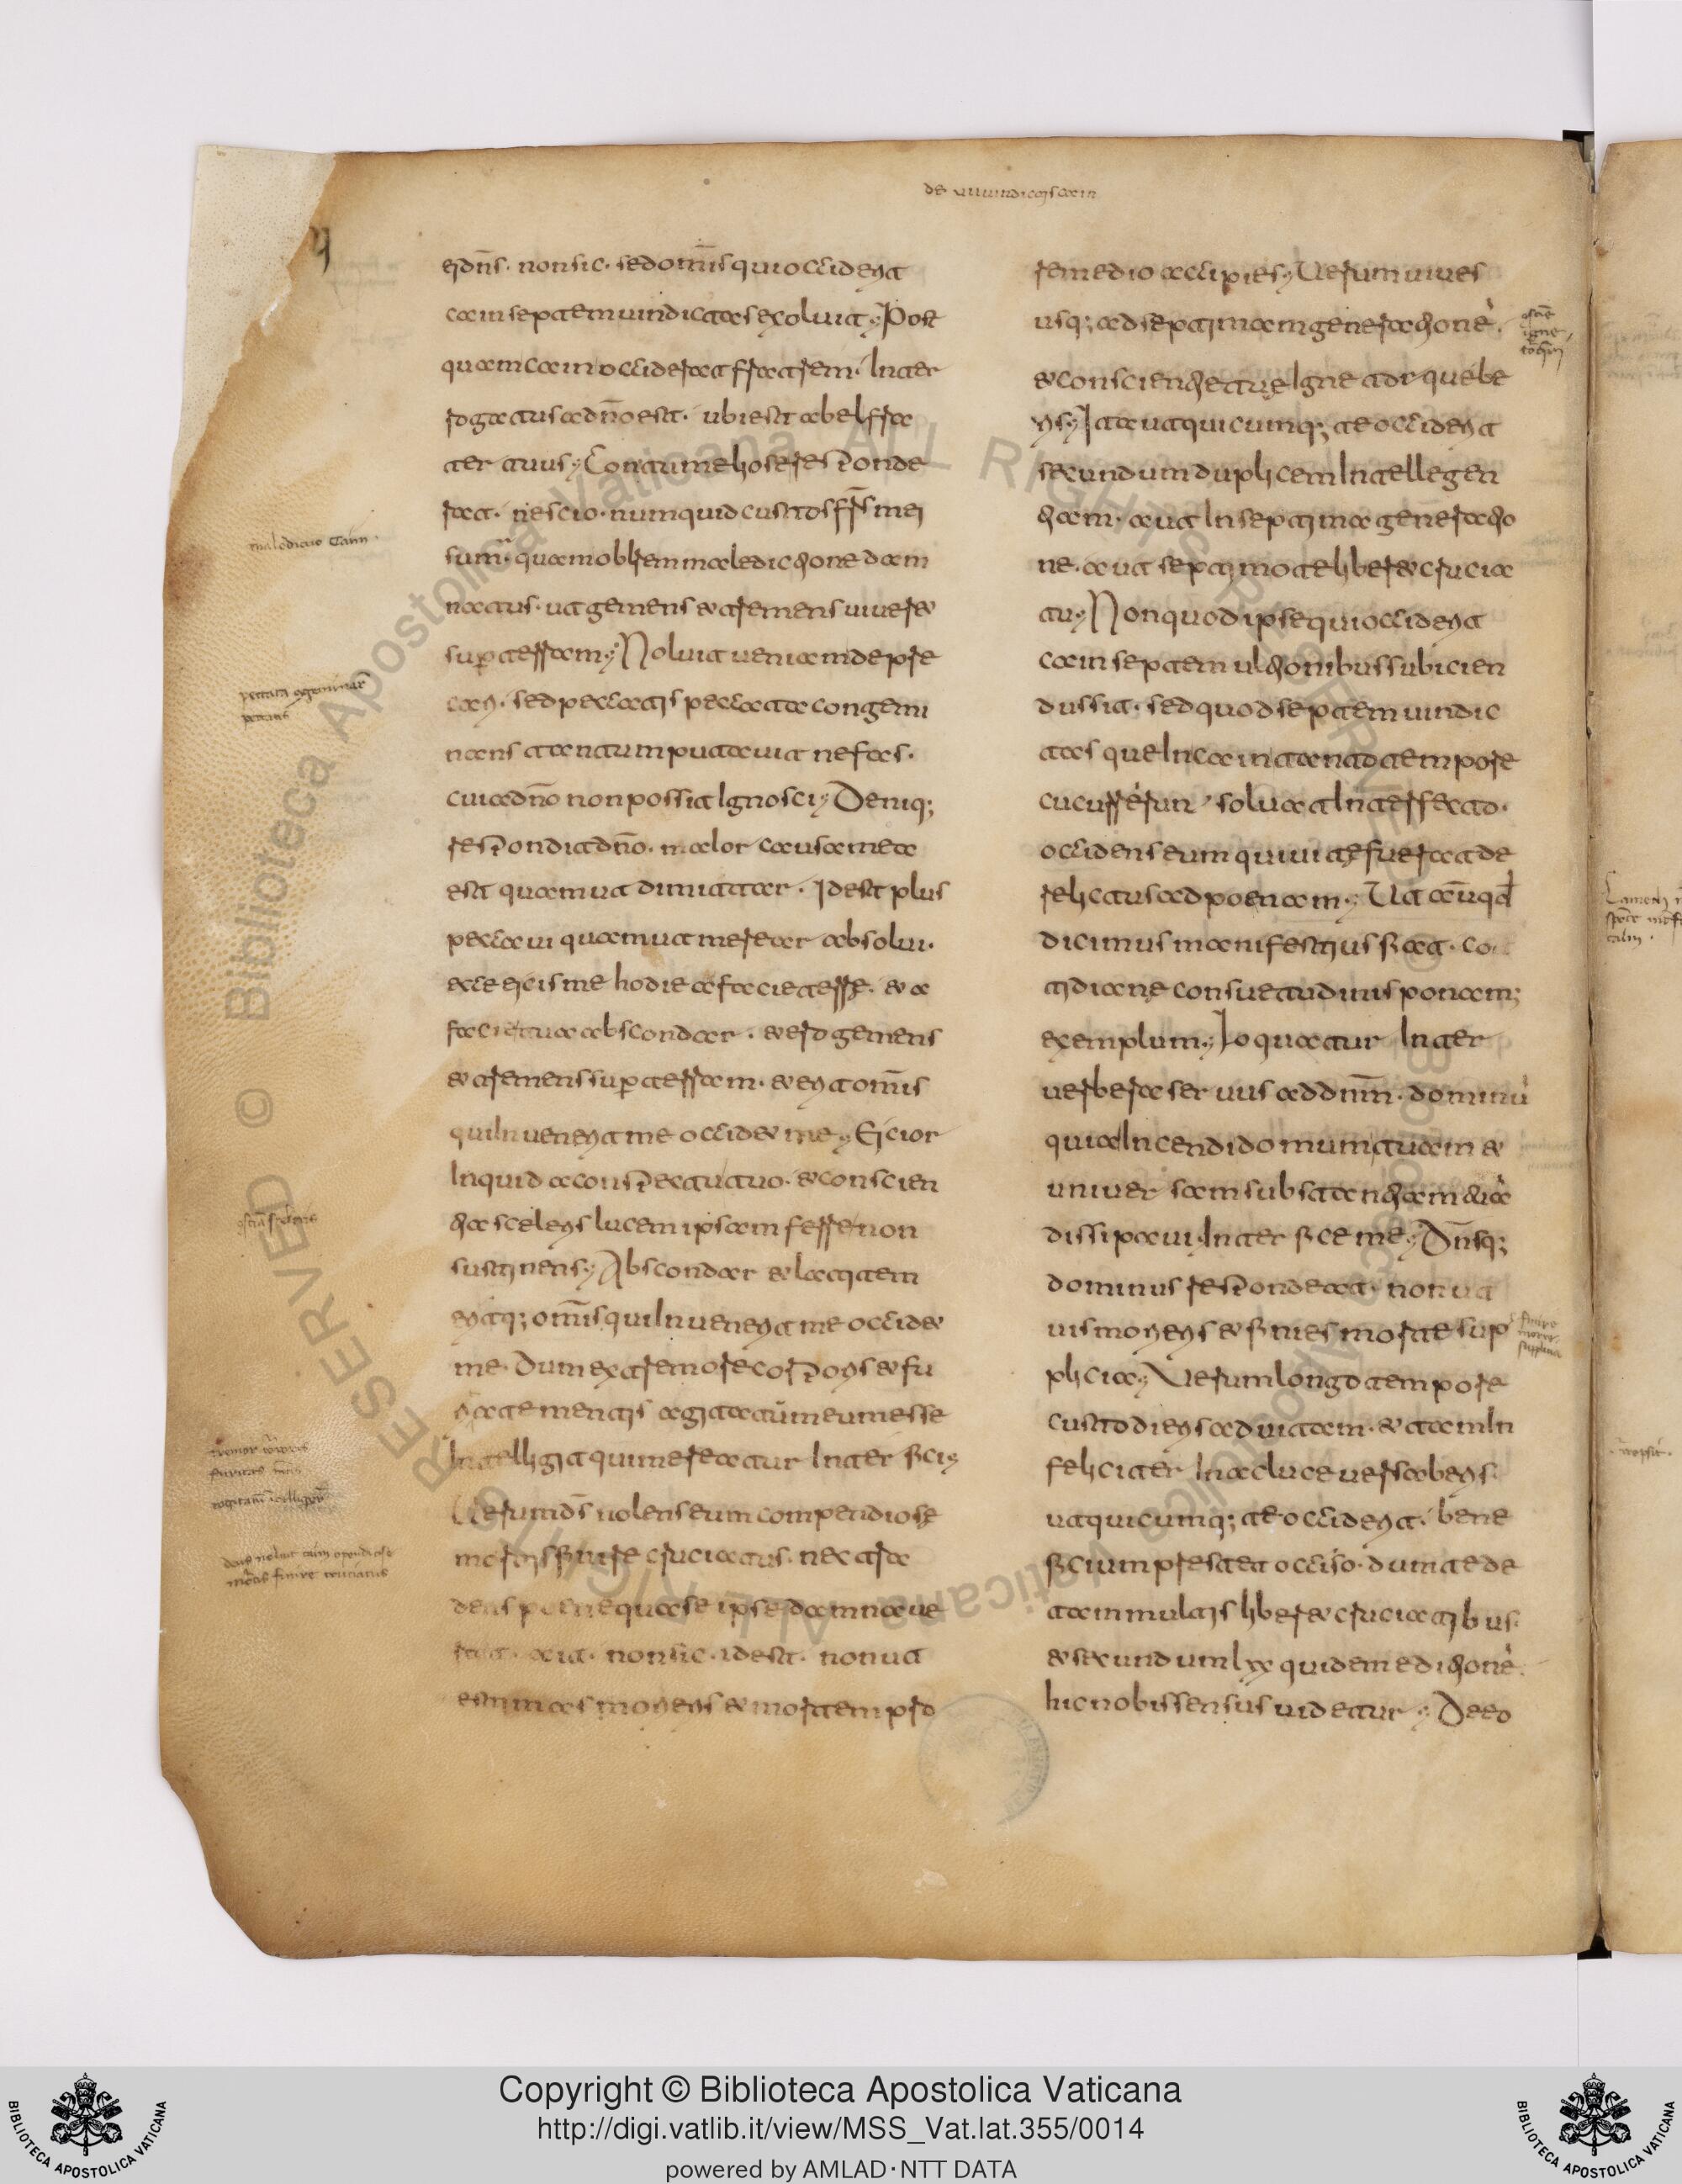 de vii uindictis cain
ei dn̄s. non sic. sed om̄is qui occiderit
cain septem uindictas exoluit. Post
quam cain occiderat fratrem. Inter
rogatus a dn̄o est. ubi est abel fra
ter tuus. Contumeliose respond&#101;
rat. nescio. numquid custos fr̄s mei
sum. quam ob rem maledictione dam
natus. ut gemens & tremens uiuer&
sup̱ terram. Noluit ueniam depre
cari. sed peccatis peccata congemi
nans tantum putauit nefas.
cui a dn̄o non possit Ignosci. Deniq;
respondit dn̄o. maior causa mea
est quam ut dimittar. Id est plus
peccaui quam ut merear absolui.
ecce eicis me hodie a facie terrę. & a
facie tua abscondar. & ero gemens
& tremens sup̱ terram. & erit om̄is
qui Inuenerit me occid& me. Eicior
Inquid a conspectu tuo. & conscien
tia sceleris lucem ipsam ferre non
sustinens. Abscondar & latitem
eritq; om̄is qui Inuenerit me occid&
me. Dum ex tremore corporis & fu
riatę mentis agitatū eum esse
Intelligit qui mereatur Interfici.
Uerum d̄s nolens eum compendiose
mortis finire cruciatus. nec tra
dens poenę qua se ipse damnaue
rat. ait. non sic. id est. non ut
estimas morieris & mortem pro
remedio accipies. Uerum uiues
usq; ad septimam generationē.
& conscientię tuę Igne torquebe
ris. Ita ut quicumq; te occiderit
secundum duplicem Intellegen
tiam. aut In septima generatio
ne. aut septimo te liber& crucia
tu. Non quod ipse qui occiderit
cain septem ultionibus subicien
dus sit. sed quod septem uindic
tas quę In cain tanto tempore
cucurrerunt soluat Interfector.
occidens eum qui uitę fuerat de
relictus ad poenam. Ut
dicimus manifestius fiat. co
tidianę consuetudinis ponam;
exemplum. Ioquatur Inter
uerbera seruus ad dn̄m. dominū
quia Incendi domum tuam &
uniuersam substantiam
dissipaui. Interfice me. Dn̄sq;
dominus respondeat. non ut
uis morieris & finies morte sup
plicia. Uerum longo tempore
custodieris ad uitam. & tam In
feliciter In hac luce uersaberis.
ut quicumq; te occiderit. bene
ficium prestet occiso. dum te de
tam multis liber& cruciatibus.
& secundum lxx quidem editionē.
hic nobis sensus uidetur. De eo
maledictio Cain.
peccata
Copyright © Biblioteca Apostolica Vaticana
http://digi.vatlib.it/view/MSS_Vat.lat.355/0014
powered by AMLAD·NTT DATA
BIBLIOTECA APOSTOLICA VATICANA
BIBLIOTECA APOSTOLICA VATICANA